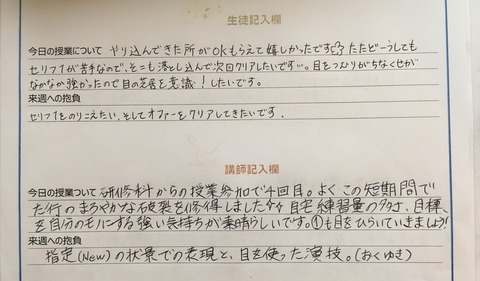 生徒記入欄
今日の授業について やり込んできた所がOKもらえて嬉しかったです ただどーしても
セリフ1が苦手なので、そこも落とし込んで次回クリアしたいです…。目をつむりがちなくせが
なかなか強かったので目の芝居を意識!したいです。
来週への抱負
セリフ1をのりこえたい、そしてオファーをクリアしてきたいです.
講師記入欄
今日の授業ついて 研修科からの授業参加で4回目。よくこの短期間で
た行のまろやかな破裂を修得しました 自宅練習量の多さ、目標
を自分のモノにする強い気持ちが素晴らしいです。①も目をひらいていきましょう!
来週への抱負
指定(New)の状景での表現と、目を使った演技。(おくゆき)